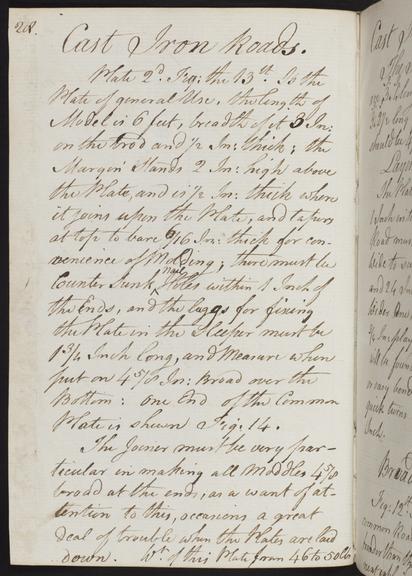 208.
Cast Iron Roads.
Plate 2d. Fig: the 13th. Is the
Plate of general Use. the length of
Model is 6 feet, breadth of it 3 In:
on the trod and 1/2 In: thick; the
Margin Stands 2 In: high above
the Plate, and is 1/2 In: thick where
it joins upon the Plate, and tapers
at top to bare 6/16 In: thick for con-
venience of Molding; there must be
Counter Sunk, Nail Holes within 1 Inch of
the Ends, and the luggs for fixing
the Plate in the Sleeper must be
1 3/4 Inch long, and Measure when
put on 4 5/8 In: Broad over the
Bottom: one End of the Common
Plate is shewn Fig. 14.
The Joiner must be very par-
ticular in making all Moddles 4 5/8
broad at the ends, as a want of at-
tention to this, occasions a great
deal of trouble when the Plates are laid
down. Wt. of this Plate from 46 to 50 lb
Cast